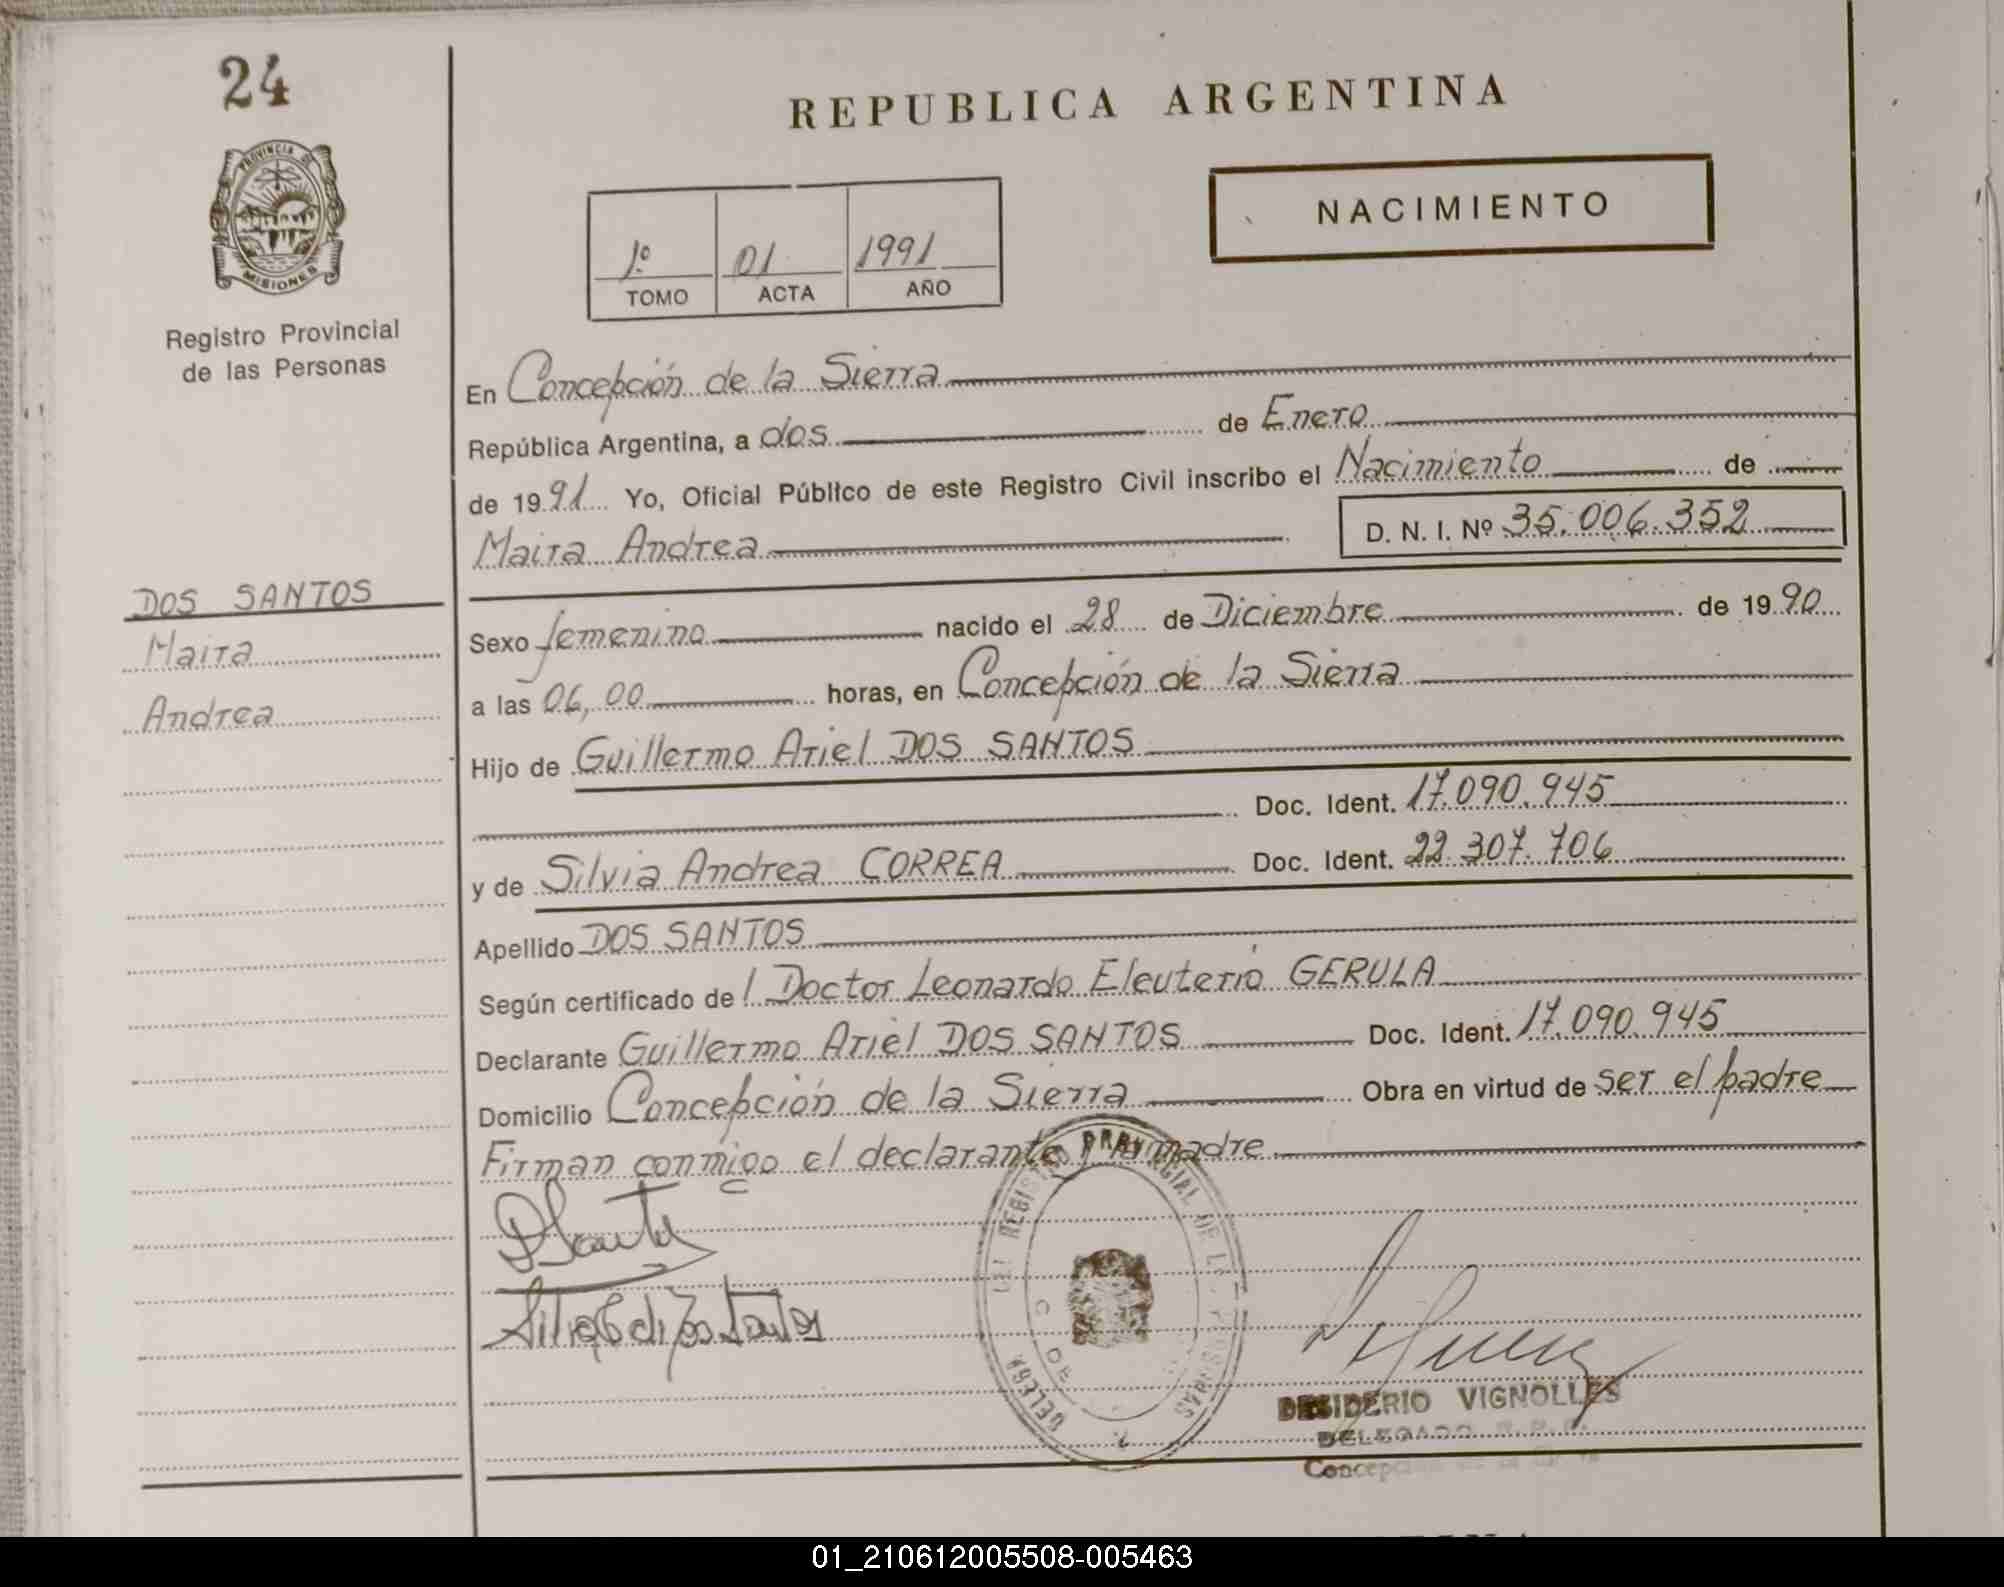 24
PROVINCIA DE
MISIONES
Registro Provincial
de las Personas
DOS SANTOS
Maira
Andrea
REPUBLICA ARGENTINA
NACIMIENTO
1º 01 1991
TOMO ACTA AÑO
En Concepción de la Sierra
República Argentina, a dos de Enero
de 1991 Yo, Oficial Público de este Registro Civil inscribo el Nacimiento de
Maira Andrea D. N. I. Nº 35.006.352
Sexo femenino nacido el 28 de Diciembre de 1990
a las 06,00 horas, en Concepción de la Sierra
Hijo de Guillermo Ariel DOS SANTOS
Doc. Ident. 17.090.945
y de Silvia Andrea CORREA Doc. Ident. 22.307.706
Apellido DOS SANTOS
Según certificado del Doctor Leonardo Eleuterio GERULA
Declarante Guillermo Ariel DOS SANTOS Doc. Ident. 17.090.945
Domicilio Concepción de la Sierra Obra en virtud de ser el padre
Firman conmigo el declarante y la madre
DESIDERIO VIGNOLLES
DELEGADO
01_210612005508-005463